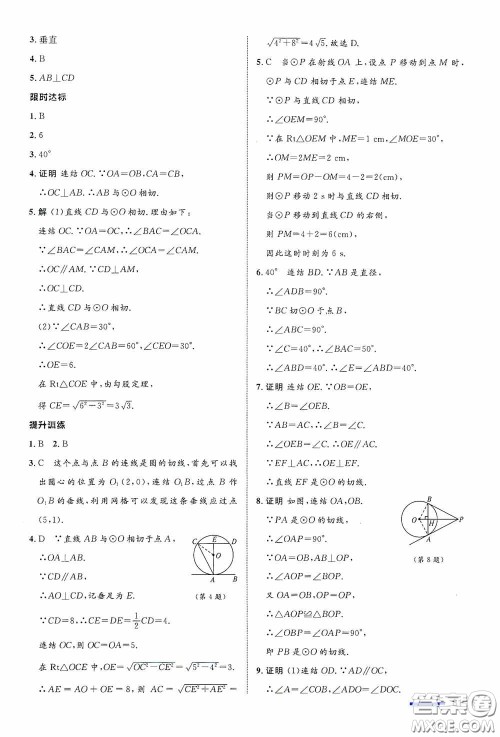 3. 垂直
4. B
5. AB⊥CD
限时达标
1. B
2. 6
3. 40°
4. 证明 连结 OC. ∵OA=OB,CA=CB,
∴OC⊥AB. ∴AB 与⊙O 相切.
5. 解 (1)直线 CD 与⊙O 相切. 理由如下:
连结 OC. ∵OA=OC,∴∠OAC=∠OCA.
∵∠BAC=∠CAM,∴∠BAC=∠OCA.
∴OC∥AM. ∵CD⊥AM,
∴OC⊥CD.
∴直线 CD 与⊙O 相切.
(2)∵∠CAB=30°,
∴∠COE=2∠CAB=60°,∠CEO=30°.
∴OE=6.
在 Rt△COE 中,由勾股定理,
得 CE=√6²-3²=3√3.
提升训练
1. B 2. B
3. C 这个点与点 B 的连线是圆的切线,首先可以找
出圆心的位置为 O₁(2,0),连结 O₁B,过点 B 作
O₁B 的垂线,利用网格可以发现这条垂线应过点
(5,1).
4. D ∵直线 AB 与⊙O 相切于点 A,
∴OA⊥AB.
∵CD∥AB,
∴AO⊥CD,记垂足为 E.
∵CD=8,∴CE=DE=1/2CD=4.
连结 OC,则 OC=OA=5.
在 Rt△OCE 中,OE=√OC²-CE²=√5²-4²=3.
∴AE=AO+OE=8,则 AC=√CE²+AE²=
C E D
O
A B
(第 4 题)
√4²+8²=4√5. 故选 D.
5. C 当⊙P 在射线 OA 上,设点 P 移动到点 M 时,
⊙P 与 CD 相切于点 E,连结 ME.
∵⊙P 与直线 CD 相切,
∴∠OEM=90°.
∵在 Rt△OEM 中,ME=1 cm,∠MOE=30°,
∴OM=2ME=2(cm)
则 PM=OP-OM=4-2=2(cm)
则⊙P 移动 2 s 时与直线 CD 相切.
当⊙P 移动到直线 CD 的右侧,
则 PM=4+2=6(cm).
因此这时时刻为 6 s.
6. 40° 连结 BD. ∵AB 是直径,
∴∠ADB=90°.
∵BC 切⊙O 于点 B,
∴∠ABC=90°.
∵∠C=40°,∴∠BAC=50°.
∴∠ABD=40°. ∴∠E=∠ABD=40°.
7. 证明 连结 OE. ∵OB=OE,
∴∠B=∠OEB.
∵AB=AC,∴∠B=∠C.
∴∠OEB=∠C. ∴OE∥AC.
∵EF⊥AC,∴OE⊥EF.
∴直线 EF 是⊙O 的切线.
8. 证明 如图,连结 OA,OB.
∵PA 是⊙O 的切线,
∴∠OAP=90°.
∵OA=OB,AB⊥OP,
∴∠AOP=∠BOP.
又 OA=OB,OP=OP,
∴△AOP≌△BOP.
∴∠OBP=∠OAP=90°.
即 PB 是⊙O 的切线.
B
O H P
A
(第 8 题)
9. 证明 (1)连结 OD. ∵OA=OD,